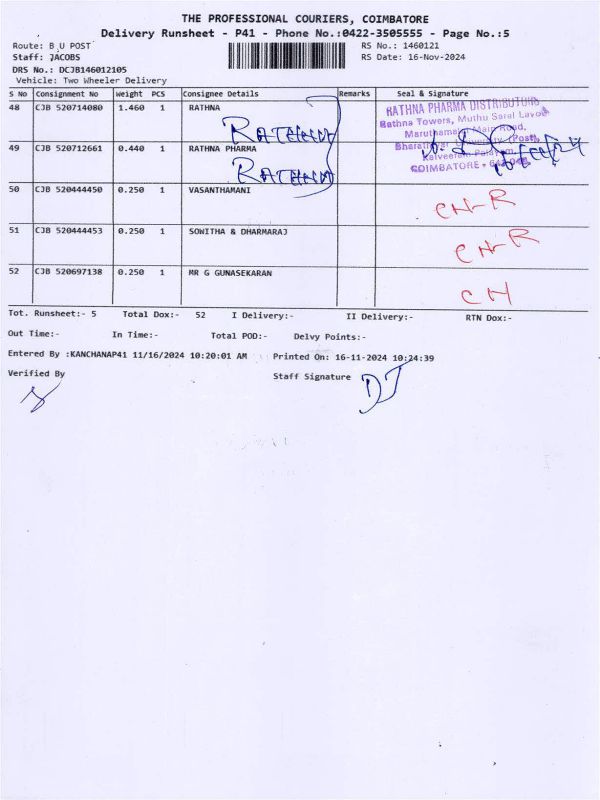 THE PROFESSIONAL COURIERS, COIMBATORE
Delivery Runsheet - P41 - Phone No.:0422-3505555 - Page No.:5
Route: B U POST
RS No.: 1460121
Staff: JACOBS
RS Date: 16-Nov-2024
DRS No.: DCJB146012105
Vehicle: Two Wheeler Delivery
S No Consignment No Weight PCS Consignee Details Remarks Seal & Signature
48 CJB 520714080 1.460 1 RATHNA
RATHNA PHARMA DISTRIBUTORS
Rathna Towers, Muthu Saral Lavoe
Maruthamalai Main Road,
Bharathiyar University (Post),
Kalveeram Palayam,
COIMBATORE - 641 046.
RATHNA
49 CJB 520712661 0.440 1 RATHNA PHARMA
RATHNA
50 CJB 520444450 0.250 1 VASANTHAMANI
CN-R
51 CJB 520444453 0.250 1 SOWITHA & DHARMARAJ
CN-R
52 CJB 520697138 0.250 1 MR G GUNASEKARAN
CH
Tot. Runsheet:- 5 Total Dox:- 52 I Delivery:- II Delivery:- RTN Dox:-
Out Time:- In Time:- Total POD:- Delvy Points:-
Entered By :KANCHANAP41 11/16/2024 10:20:01 AM Printed On: 16-11-2024 10:24:39
Verified By Staff Signature